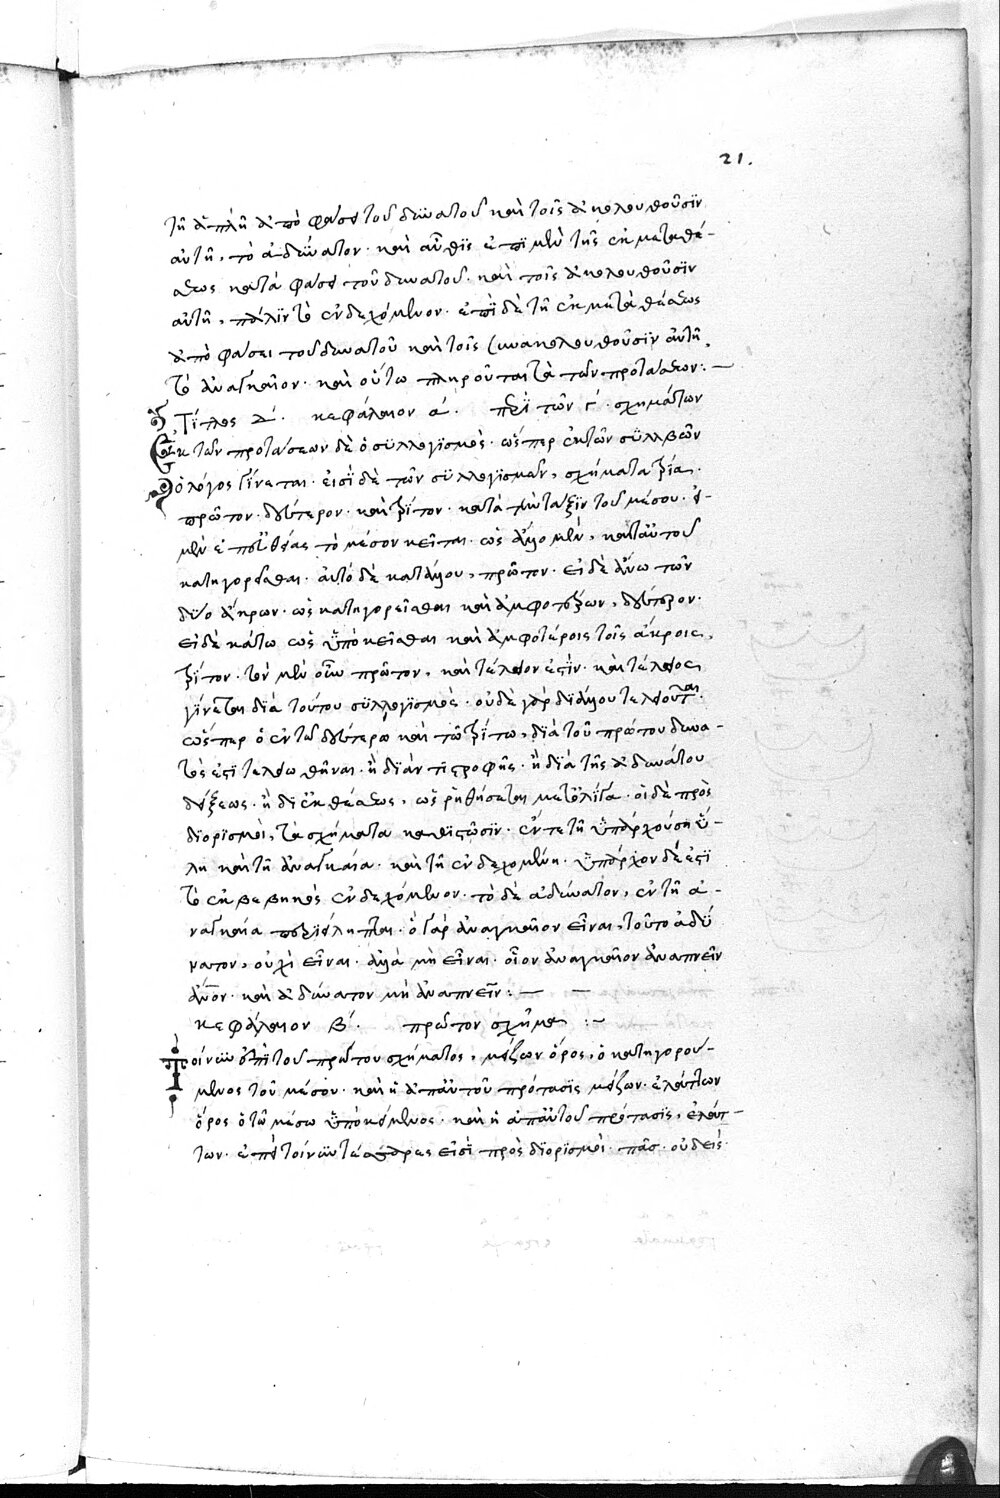 21.
τῆ ἁπλῆ ἀποφάσει τοῦ δυνατοῦ καὶ τοῖς ἀκολουθοῦσϊν
αὐτῆ, τὸ ἀδύνατον· καὶ αὖθις ἐπὶ μὲν τῆς ἐκ μεταθέ-
σεως κατάφασει τοῦ δυνατοῦ· καὶ τοῖς ἀκολουθοῦσϊν
αὐτῆ, πάλϊν τὸ ἐνδεχόμενον· ἐπὶ δὲ τῆ ἐκ μεταθέσεως
ἀποφάσει τοῦ δυνατοῦ καὶ τοῖς συνακολουθοῦσϊν αὐτῆ,
τὸ ἀναγκαῖον· καὶ οὕτω πληροῦται τὰ τῶν προτάσεων:—
Τίτλος Δ΄. κεφάλαιον α΄. περὶ τῶν γ΄. σχημάτων
Ἐκ τῶν προτάσεων δὲ ὁ συλλογϊσμὸς· ὥσπερ ἐκ τῶν συλλαβῶν
ὁ λόγος γίνεται· εἰσὶ δὲ τῶν συλλογϊσμῶν, σχήματα τρία·
πρῶτον· δεύτερον· καὶ τρίτον· κατὰ τὴν τάξϊν τοῦ μέσου· εἰ
μὲν ἐπ' εὐθείας τὸ μέσον κεῖται· ὡς ἄλλο μὲν, κατ' αὐτοῦ
κατηγορεῖσθαι· αὐτὸ δὲ κατ' ἄλλου, πρῶτον· εἰ δὲ ἄνω τῶν
δύο ἄκρων· ὡς κατηγορεῖσθαι κατ' ἀμφοτέρων, δεύτερον·
εἰ δὲ κάτω ὡς ὑποκεῖσθαι καὶ ἀμφοτέροις τοῖς ἄκροις,
τρίτον· τὸ μὲν οὖν πρῶτον, καὶ τέλειον ἐστὶν· καὶ τέλειος
γίνεται διὰ τούτου συλλογϊσμὸς· οὐδὲ γὰρ δι' ἄλλου τελειοῦται·
ὥσπερ ὁ ἐν τῶ δευτέρω καὶ τῶ τρίτω, διὰ τοῦ πρώτου δυνα-
τὸς ἐστὶ τελειωθῆναι· ἢ δι' ἀντιστροφῆς· ἢ διὰ τῆς ἀδυνάτου
δείξεως· ἢ δι' ἐκθέσεως, ὡς ῥηθήσεται μετ' ὀλίγα· οἱ δὲ προσ
διορισμοὶ, τὰ σχήματα καθιστῶσϊν· ἔν τε τῆ ὑπαρχούση ὕ-
λη καὶ τῆ ἀναγκαία· καὶ τῆ ἐνδεχομένη· ὑπάρχον δέ ἐστϊ
τὸ ἐκβεβηκὸς ἐνδεχόμενον· τὸ δὲ ἀδύνατον, ἐν τῆ ἀ-
ναγκαία περιείληπται· ὁ γὰρ ἀναγκαῖον εἶναι, τοῦτο ἀδύ
νατον, οὐχὶ εἶναι· ἀλλὰ μὴ εἶναι· οἷον ἀναγκαῖον ἀναπνεῖν
ἄνθρωπον· καὶ ἀδύνατον μὴ ἀναπνεῖν:— —
κεφάλαιον Β΄. πρῶτον σχῆμα:—
Τοίνυν ἐπὶ τοῦ πρώτου σχήματος, μείζων ὅρος, ὁ κατηγορού-
μενος τοῦ μέσου· καὶ ἡ ἀπ' αὐτοῦ πρότασϊς μείζων· ἐλάττων
ὅρος ὁ τῶ μέσω ὑποκείμενος· καὶ ἡ ἀπ' αὐτοῦ πρότασϊς, ἐλάτ-
των· ἐπεὶ τοίνυν τέσσαρες εἰσὶ προσδιορϊσμοὶ· πᾶσ· οὐδεὶς